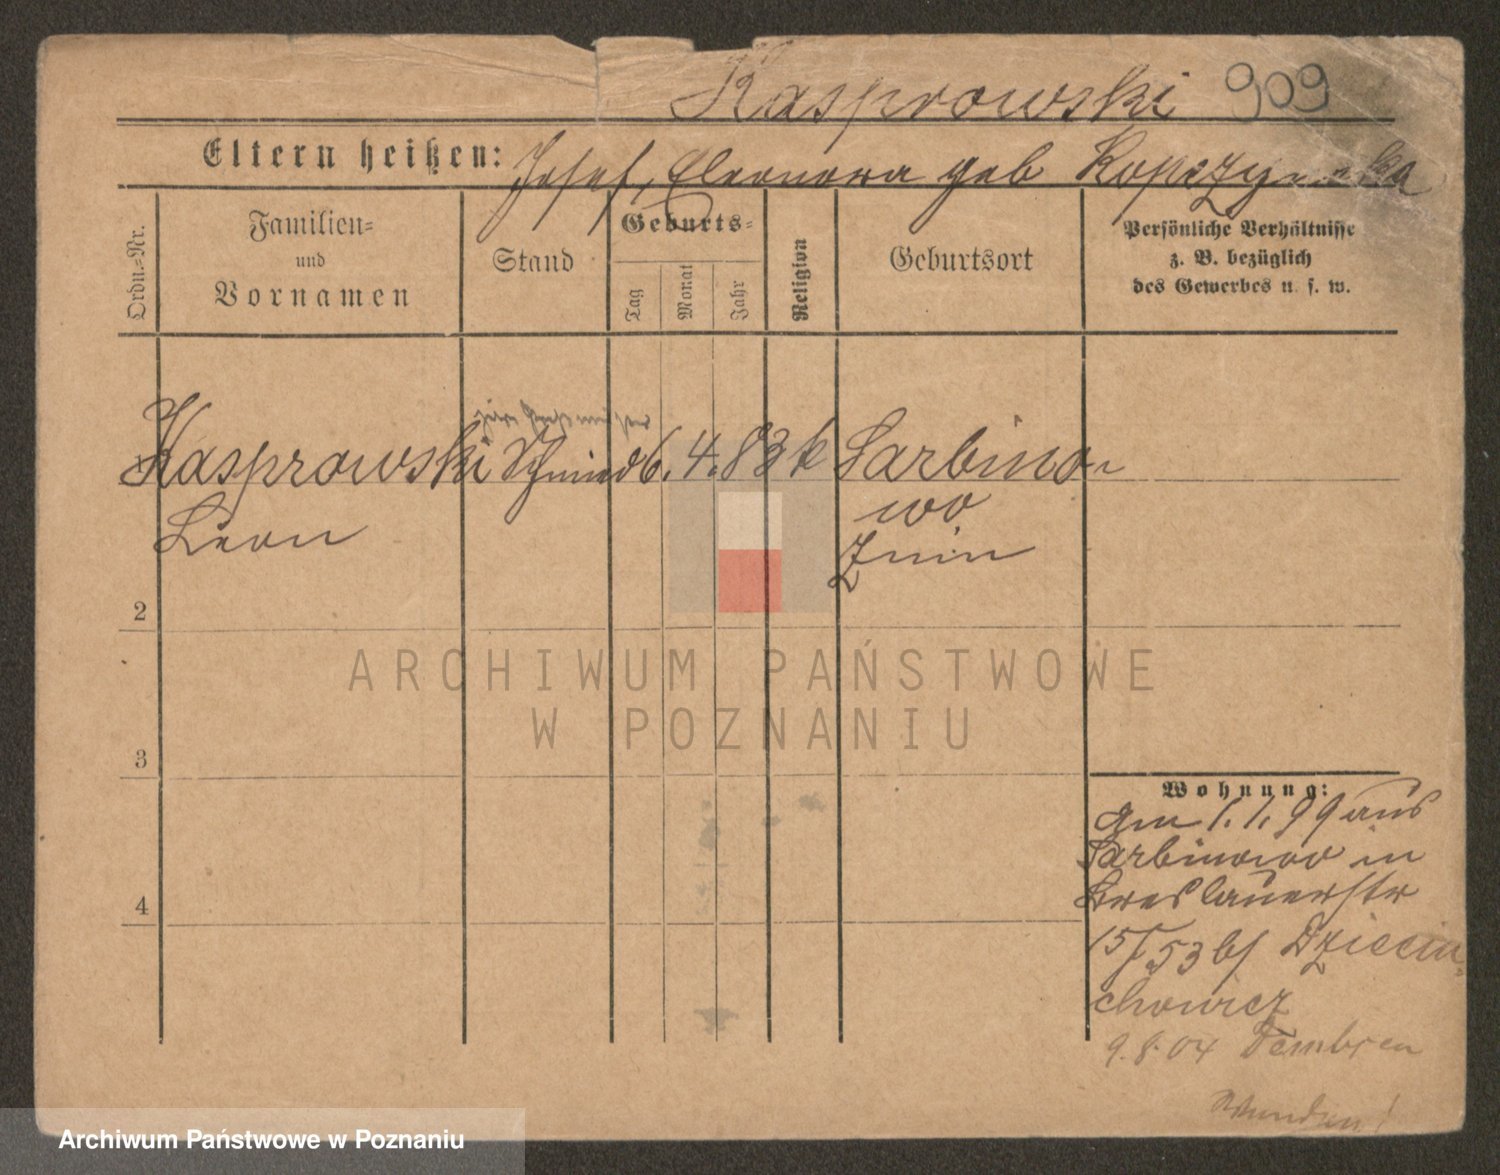 Kasprowski 909
Eltern heißen: Josef, Eleonora geb Kopczynska
Ordn.-Nr.
Familien-
und
Vornamen
Stand
Geburts-
Tag
Monat
Jahr
Religion
Geburtsort
Persönliche Verhältnisse
z. B. bezüglich
des Gewerbes u. s. w.
Kasprowski Schmied 6. 4. 83 k Sarbino-
Leon
wo
Znin
2
ARCHIWUM PAŃSTWOWE
W POZNANIU
3
4
Wohnung:
am 1. 1. 99 aus
Sarbinowo in
Breslauerstr
15/ 53 b/ Dziecin-
chowicz
9. 8. 04 Dembsen
Archiwum Państwowe w Poznaniu